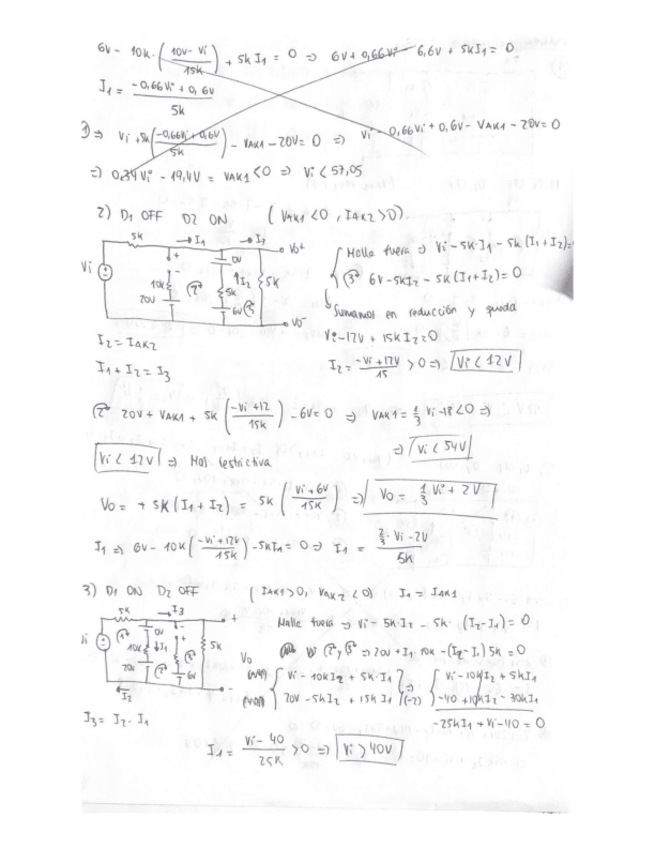 6V - 10K · (10V - Vi / 15K) + 5K I1 = 0 => 6V + 0,66Vi - 6,6V + 5K I1 = 0
I1 = -0,66Vi + 0,6V / 5K
1) => Vi + 5K(-0,66Vi + 0,6V / 5K) - VAK1 - 20V = 0 => Vi - 0,66Vi + 0,6V - VAK1 - 20V = 0
=> 0,34Vi - 19,4V = VAK1 < 0 => Vi < 57,05
2) D1 OFF D2 ON (VAK1 < 0, IAK2 > 0).
5K I1 I3 Vo+
Vi + - 0V I2 5K
10K 20V (2) 5K 6V (3) Vo-
Malla fuera => Vi - 5K·I1 - 5K (I1 + I2) =
(3) 6V - 5KI2 - 5K (I1 + I2) = 0
Sumamos en reducción y queda
Vi - 12V + 15K I2 = 0
I2 = IAK2
I1 + I2 = I3
I2 = -Vi + 12V / 15 > 0 => Vi < 12V
(2) 20V + VAK1 + 5K (-Vi + 12 / 15K) - 6V = 0 => VAK1 = 1/3 Vi - 18 < 0 =>
=> Vi < 54V
Vi < 12V => Mas restrictiva
Vo = + 5K (I1 + I2) = 5K (Vi + 6V / 15K) => Vo = 1/3 Vi + 2V
I1 => 6V - 10K (-Vi + 12V / 15K) - 5KI1 = 0 => I1 = 2/3 · Vi - 2V / 5K
3) D1 ON D2 OFF (IAK1 > 0, VAK2 < 0) I1 = IAK1
5K I3 +
Vi (1) 0V + - 5K
10K I1 20V (2) (3) 6V Vo
I2 -
Malla fuera => Vi - 5K·I2 - 5K· (I2 - I1) = 0
(2) y (3) => 20V + I1· 10K - (I2 - I1) 5K = 0
Vi - 10KI2 + 5K·I1
20V - 5KI2 + 15K I1 (-2) =>
Vi - 10KI2 + 5KI1
-40 + 10KI2 - 30KI1
-25KI1 + Vi - 40 = 0
I3 = I2 - I1
I1 = Vi - 40 / 25K > 0 => Vi > 40V